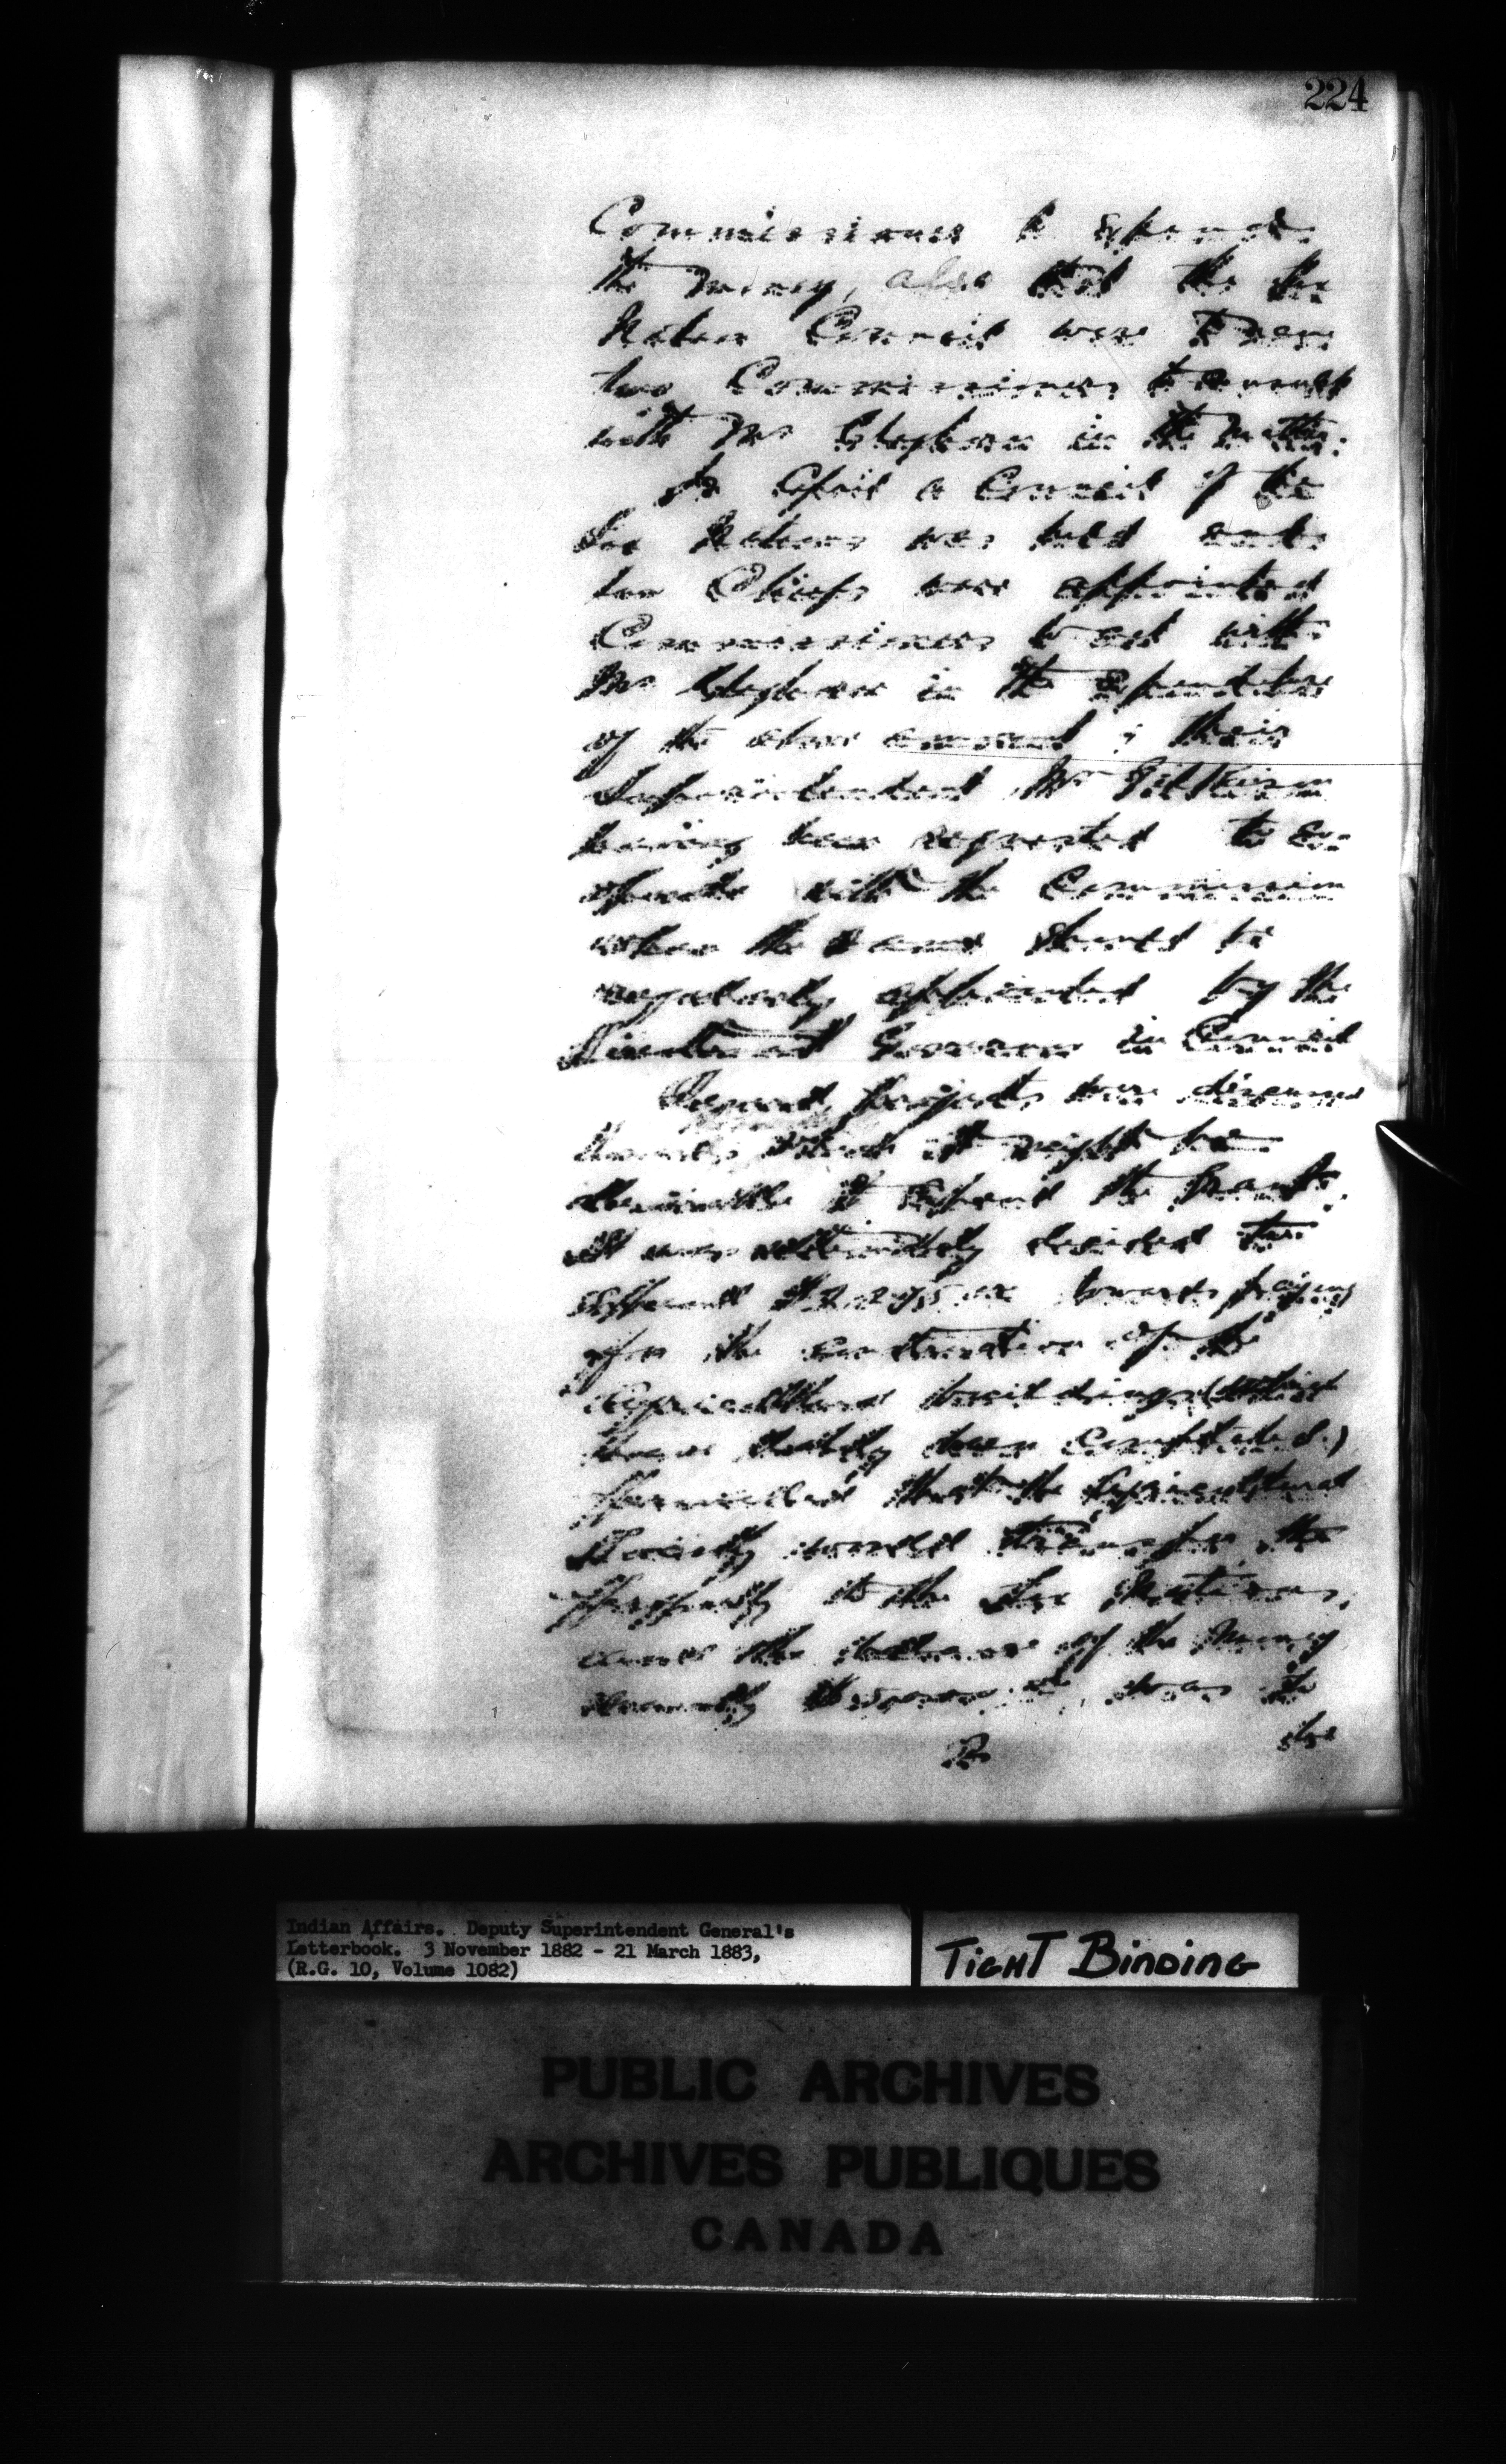 224
Commissioner to expend
the money, also that the Six
Nation Council were to name
two Commissioners to consult
with Mr Cleghorn in the matter.
In April a Council of the
Six Nations was held and
two Chiefs were appointed
Commissioners to act with
Mr Cleghorn in the Expenditure
of the above amount; their
Superintendent Mr Gilkison
having been requested to co-
operate with the Commission
when the same should be
regularly appointed by the
Lieutenant Governor in Council
Several projects were discussed
which it might be
desirable to expend the Grant.
It was ultimately decided to
expend towards paying
for the construction of the
Agricultural buildings (which
have lately been Completed.)
provided that the Agricultural
Society would transfer the
property to the Six Nations,
and the balance of the money
was to
be
Indian Affairs. Deputy Superintendent General's
Letterbook. 3 November 1882 - 21 March 1883,
(R.G. 10, Volume 1082)
TIGHT BINDING
PUBLIC ARCHIVES
ARCHIVES PUBLIQUES
CANADA